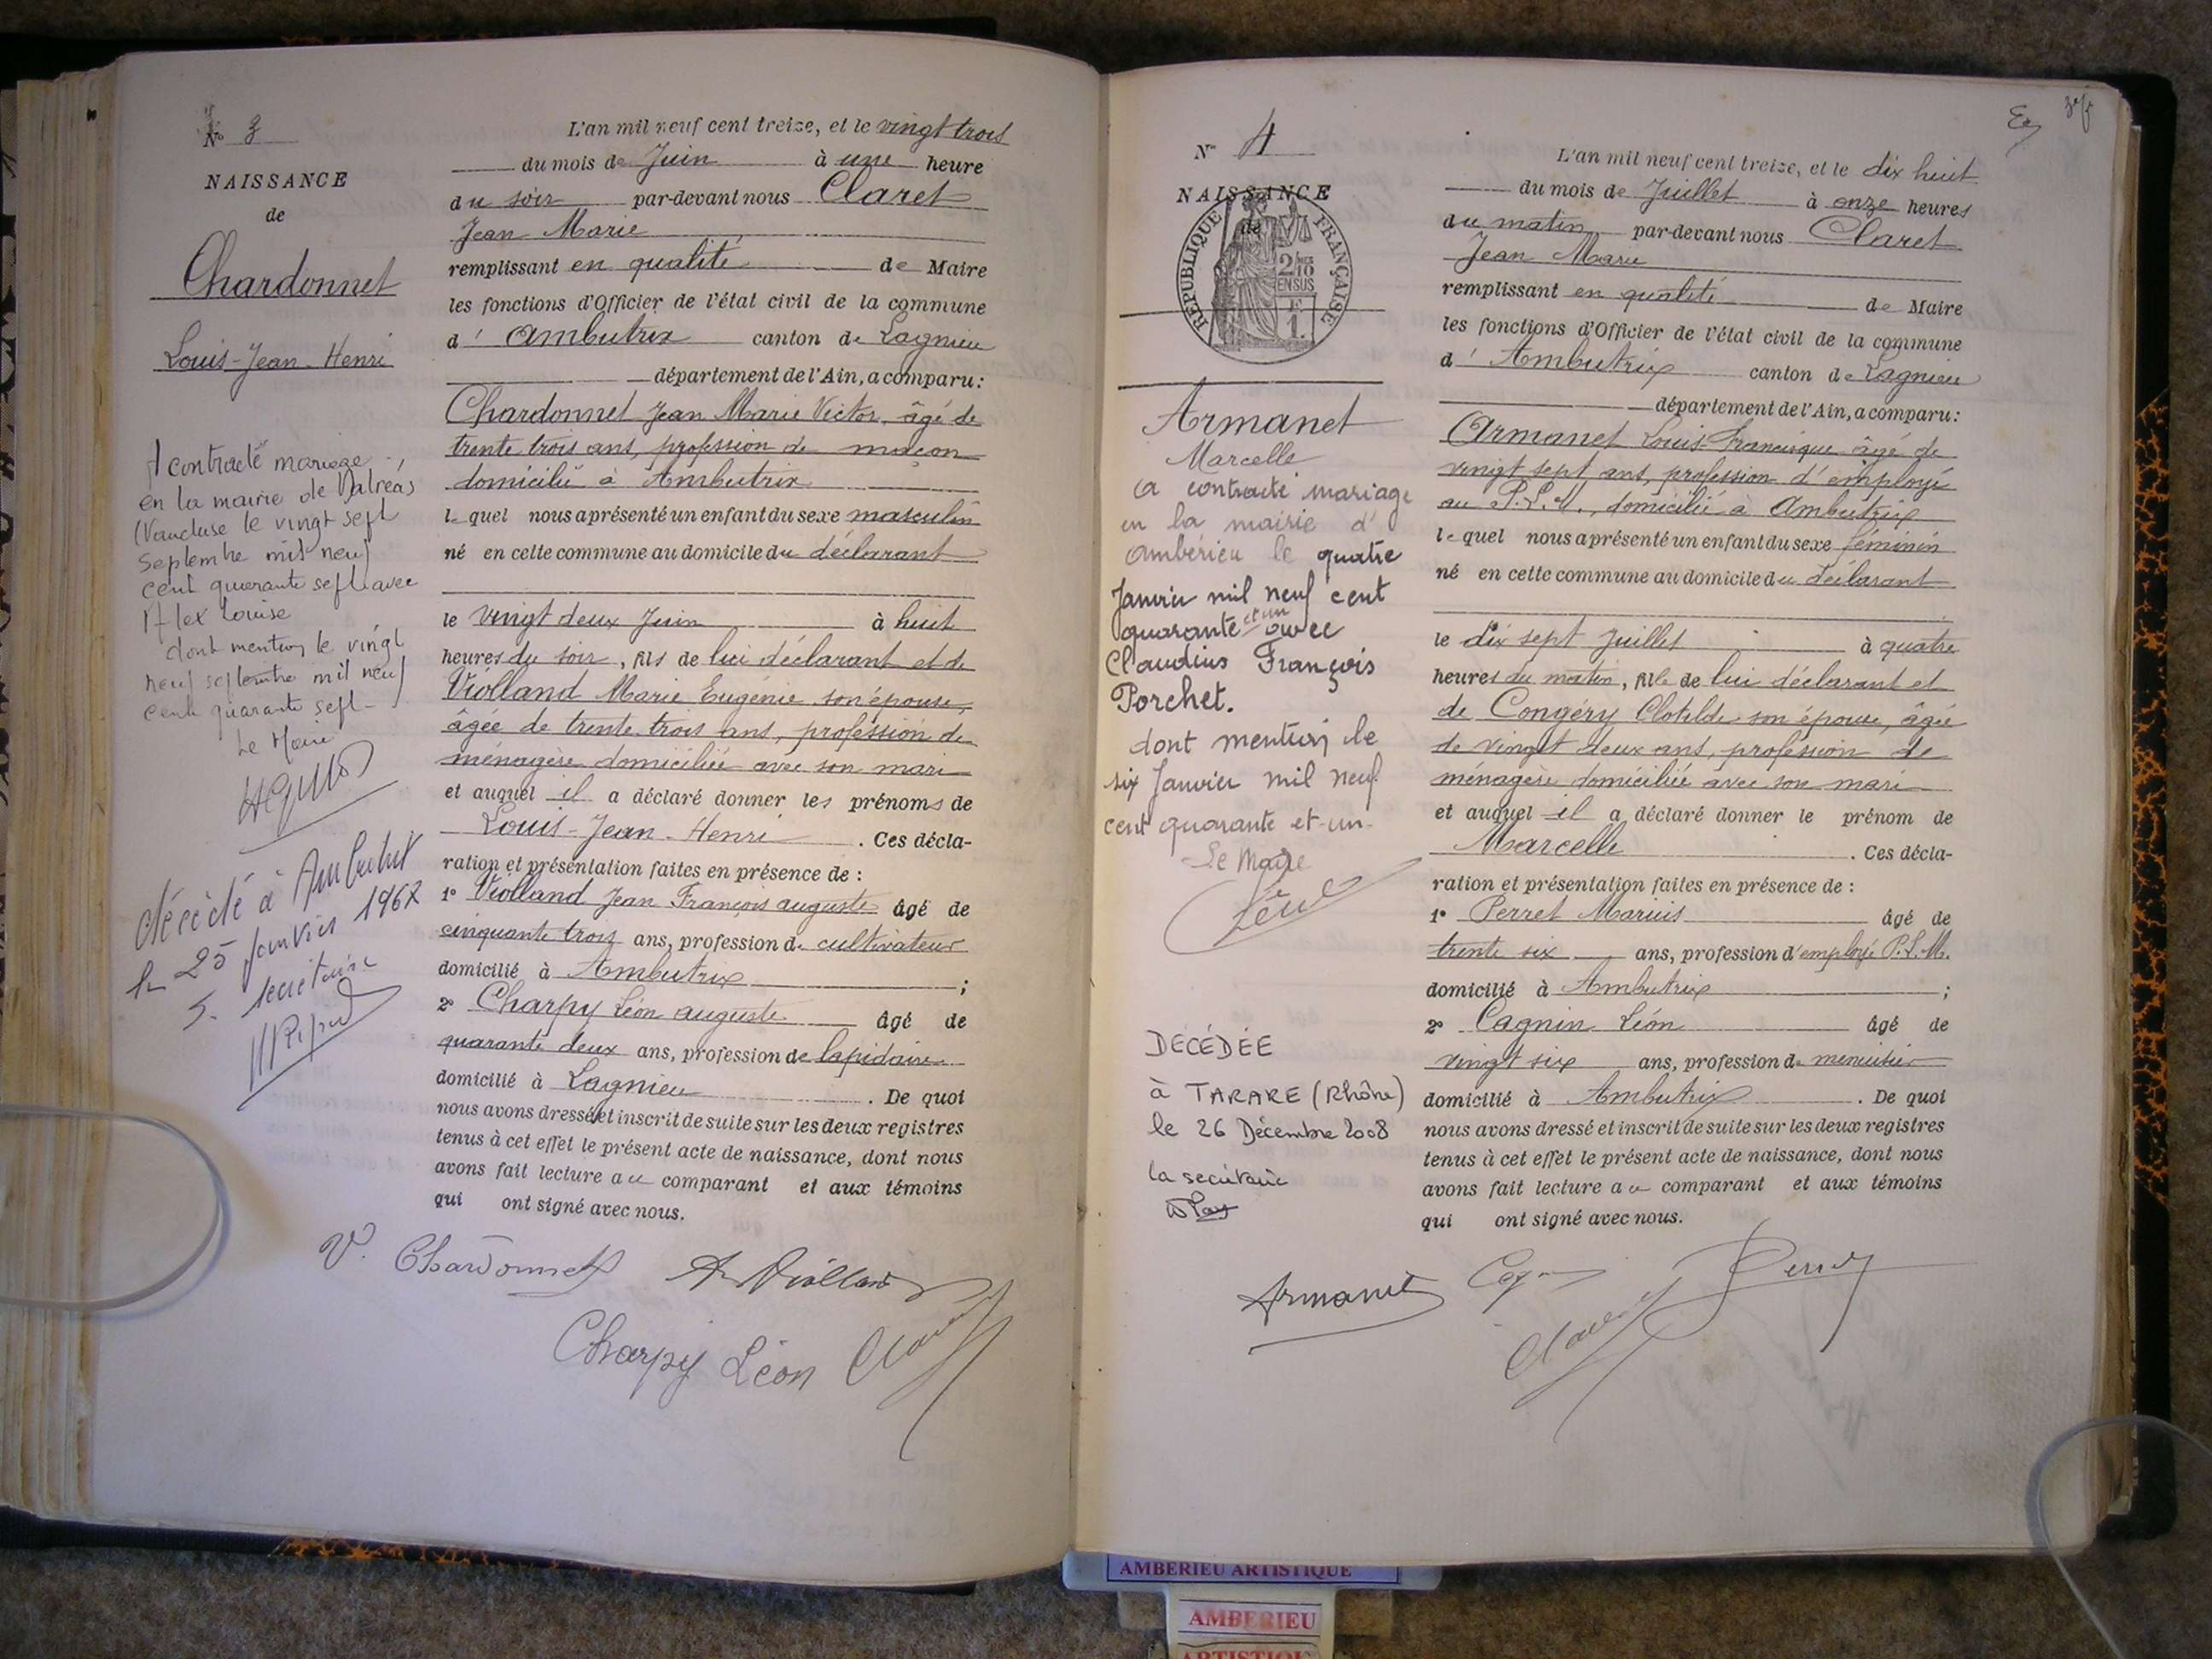 N° 3
NAISSANCE
de
Chardonnet
Louis-Jean-Henri
A contracté mariage
en la mairie de Valréas
(Vaucluse le vingt sept
septembre mil neuf
cent quarante sept avec
Louise
dont mention le vingt
neuf septembre mil neuf
cent quarante sept -
Le Maire
décédé à Ambutrix
le 25 janvier 1967
secrétaire
L'an mil neuf cent treize, et le vingt trois
du mois de Juin à une heure
du soir par-devant nous Claret
Jean Marie
remplissant en qualité de Maire
les fonctions d'Officier de l'état civil de la commune
d' Ambutrix canton de Lagnieu
département de l'Ain, a comparu :
Chardonnet Jean Marie Victor, âgé de
trente trois ans, profession de maçon
domicilié à Ambutrix
lequel nous a présenté un enfant du sexe masculin
né en cette commune au domicile du déclarant
le vingt deux Juin à huit
heures du soir, fils de lui déclarant et de
Violland Marie Eugénie son épouse,
âgée de trente trois ans, profession de
ménagère domiciliée avec son mari
et auquel il a déclaré donner les prénoms de
Louis-Jean-Henri . Ces décla-
ration et présentation faites en présence de :
1° Violland Jean François auguste âgé de
cinquante trois ans, profession de cultivateur
domicilié à Ambutrix ;
2° Charpy Léon auguste âgé de
quarante deux ans, profession de lapidaire
domicilié à Lagnieu . De quoi
nous avons dressé et inscrit de suite sur les deux registres
tenus à cet effet le présent acte de naissance, dont nous
avons fait lecture au comparant et aux témoins
qui ont signé avec nous.
V. Chardonnet A. Violland
Charpy Léon Claret
N° 4
NAISSANCE
de
RÉPUBLIQUE FRANÇAISE
2/10
EN SUS
F
1.
Armanet
Marcelle
a contracté mariage
en la mairie d'
Ambérieu le quatre
Janvier mil neuf cent
quarante et un avec
Claudius François
Porchet.
dont mention le
six Janvier mil neuf
cent quarante et un.
Le Maire
DÉCÉDÉE
à TARARE (Rhône)
le 26 Décembre 2008
la secrétaire
L'an mil neuf cent treize, et le dix huit
du mois de Juillet à onze heures
du matin par-devant nous Claret
Jean Marie
remplissant en qualité de Maire
les fonctions d'Officier de l'état civil de la commune
d' Ambutrix canton de Lagnieu
département de l'Ain, a comparu :
Armanet Louis Francisque âgé de
vingt sept ans, profession d'employé
au P.L.M., domicilié à Ambutrix
lequel nous a présenté un enfant du sexe féminin
né en cette commune au domicile du déclarant
le dix sept Juillet à quatre
heures du matin, fille de lui déclarant et
de Congéry Clotilde son épouse, âgée
de vingt deux ans, profession de
ménagère domiciliée avec son mari
et auquel il a déclaré donner le prénom de
Marcelle . Ces décla-
ration et présentation faites en présence de :
1° Perret Marius âgé de
trente six ans, profession d'employé P.L.M.
domicilié à Ambutrix ;
2° Cagnin Léon âgé de
vingt six ans, profession de menuisier
domicilié à Ambutrix . De quoi
nous avons dressé et inscrit de suite sur les deux registres
tenus à cet effet le présent acte de naissance, dont nous
avons fait lecture au comparant et aux témoins
qui ont signé avec nous.
Armanet Perret
Claret
AMBERIEU ARTISTIQUE
AMBERIEU
ARTISTIQUE